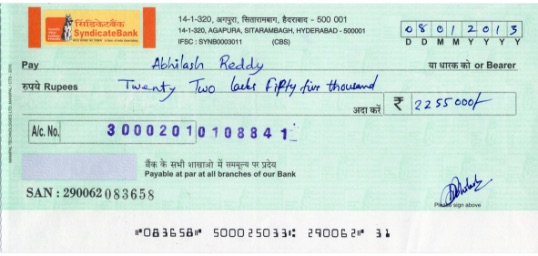 सिंडिकेटबैंक
SyndicateBank
14-1-320, अगापुरा, सितारामबाग, हैदराबाद - 500 001
14-1-320, AGAPURA, SITARAMBAGH, HYDERABAD - 500001
IFSC : SYNB0003011 (CBS)
0 8 0 1 2 0 1 3
D D M M Y Y Y Y
Pay Abhilash Reddy या धारक को or Bearer
रुपये Rupees Twenty Two lacks Fifty five thousand
अदा करें ₹ 2255000/-
A/c. No. 30002010108841
बैंक के सभी शाखाओं में सममूल्य पर प्रदेय
Payable at par at all branches of our Bank
SAN : 290062 083658
Abhilash
Please sign above
⑈083658⑈ 500025033⑆ 290062⑈ 31